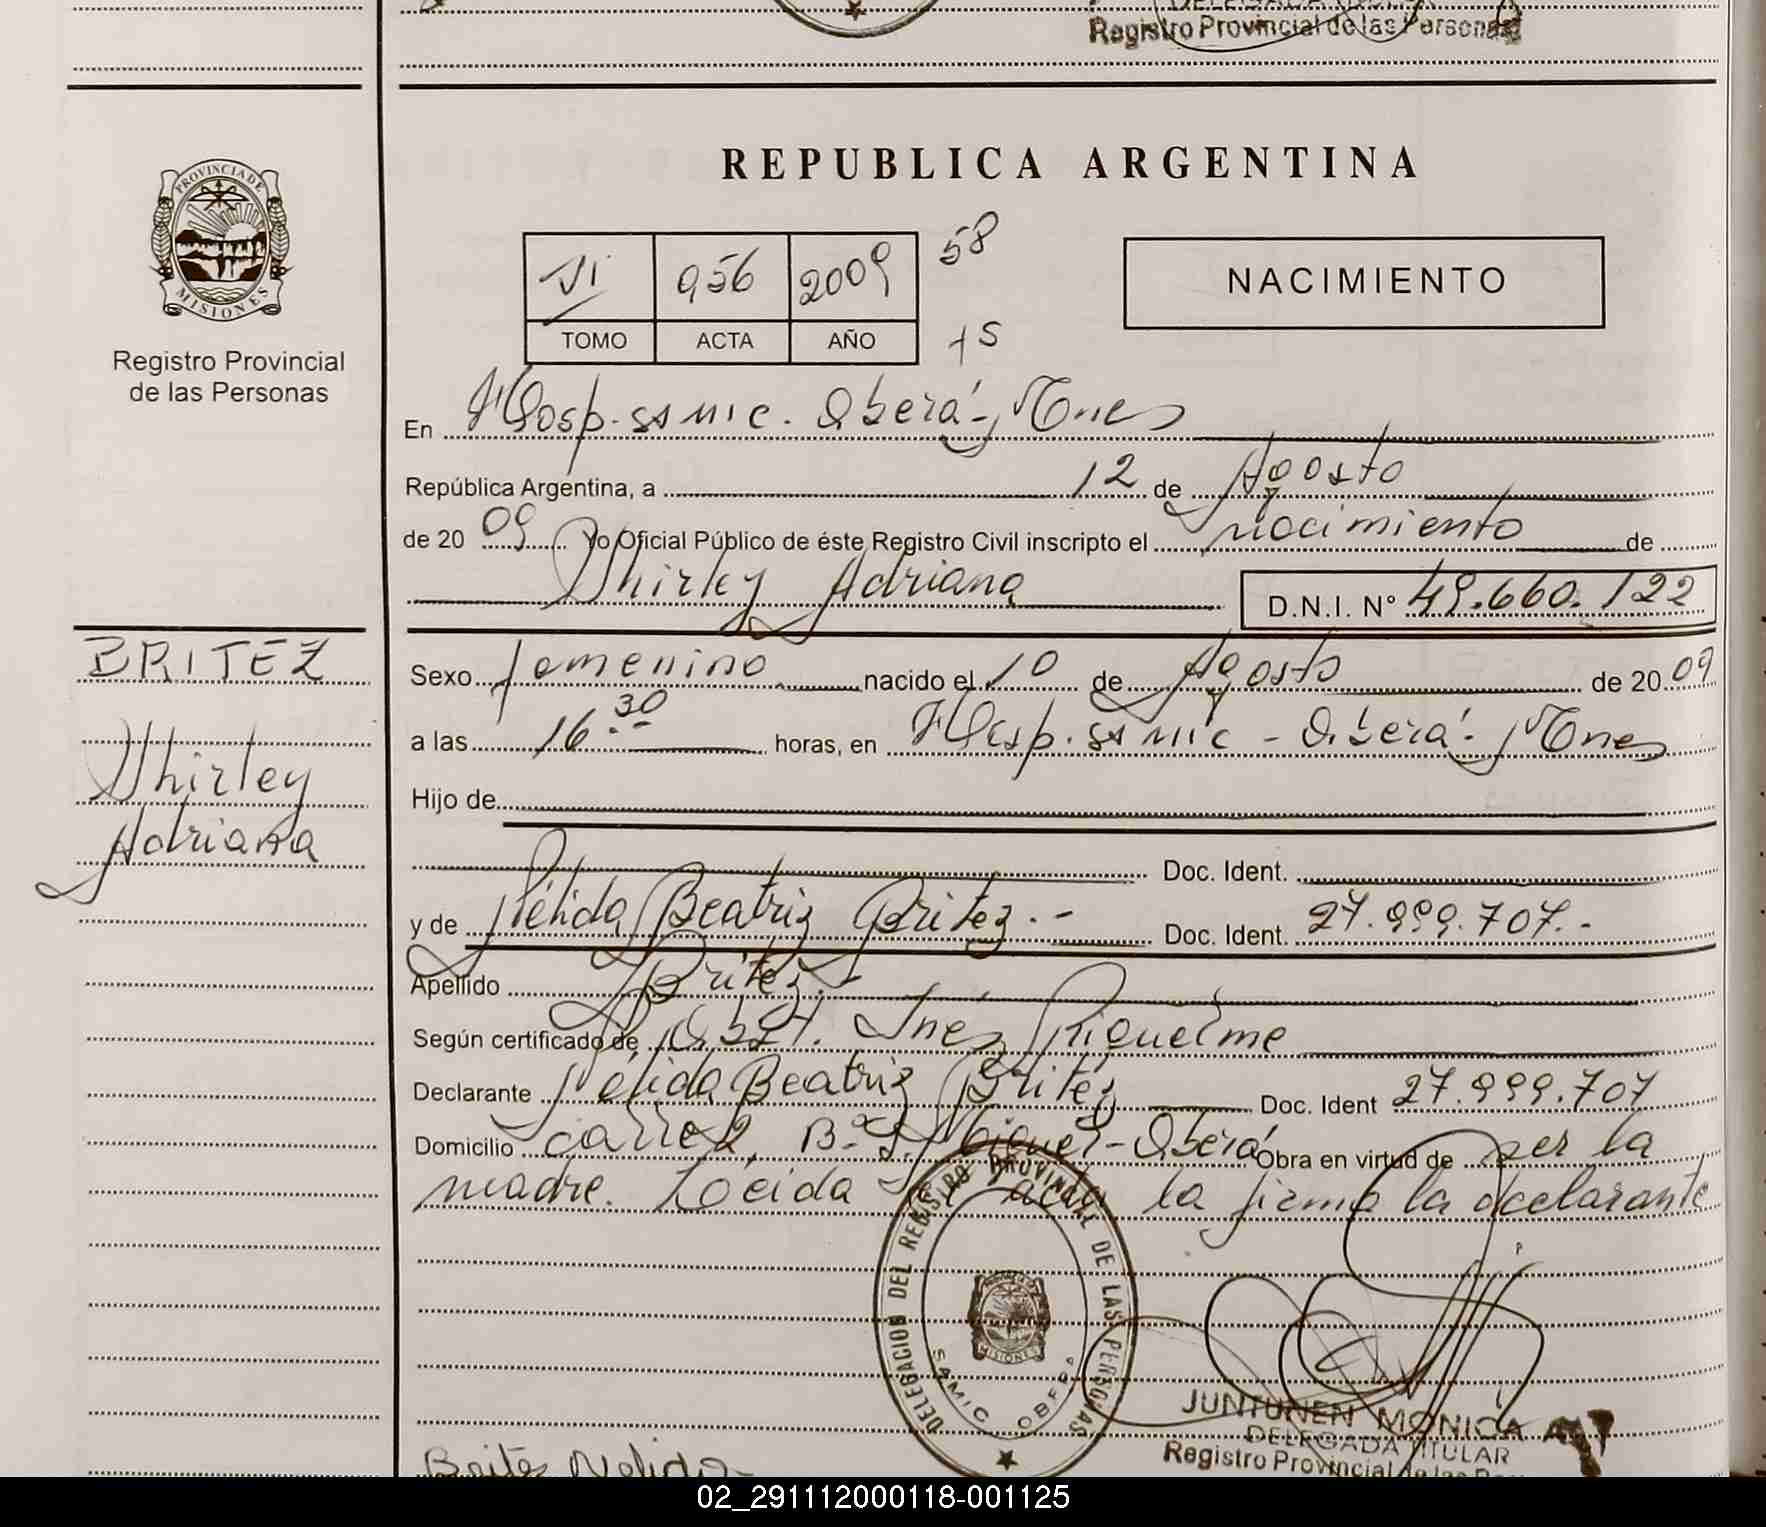 Registro Provincial de las Personas
PROVINCIA DE
MISIONES
Registro Provincial
de las Personas
REPUBLICA ARGENTINA
VI 956 2009 58
TOMO ACTA AÑO
NACIMIENTO
En Hosp. SAMIC. Oberá - Mnes
República Argentina, a 12 de Agosto
de 2009 Yo Oficial Público de éste Registro Civil inscripto el nacimiento de
Shirley Adriana D.N.I. N° 49.660.122
BRITEZ
Shirley
Adriana
Sexo femenino nacido el 10 de Agosto de 2009
a las 16.30 horas, en Hosp. SAMIC - Oberá - Mnes
Hijo de
Doc. Ident.
y de Nélida Beatriz Britez.- Doc. Ident. 27.999.707.-
Apellido Britez.-
Según certificado de Obst. Inés Riquelme
Declarante Nélida Beatriz Britez Doc. Ident 27.999.707
Domicilio calle 2, Bº S. Miguel - Oberá Obra en virtud de ser la
madre. Leida el acta la firma la declarante
DELEGACION DEL REGISTRO PROVINCIAL DE LAS PERSONAS
SAMIC OBERA
MISIONES
JUNTUNEN MONICA
DELEGADA TITULAR
Registro Provincial de las
Brites Nelida
02_291112000118-001125